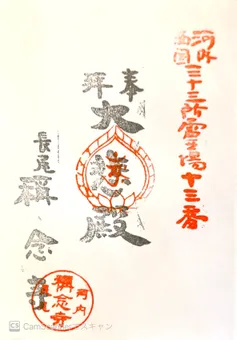 河内
西国
三十三所霊場十三番
奉拝
大 殿
長尾
稱念寺
河内
稱念寺
CS CamScannerでスキャン